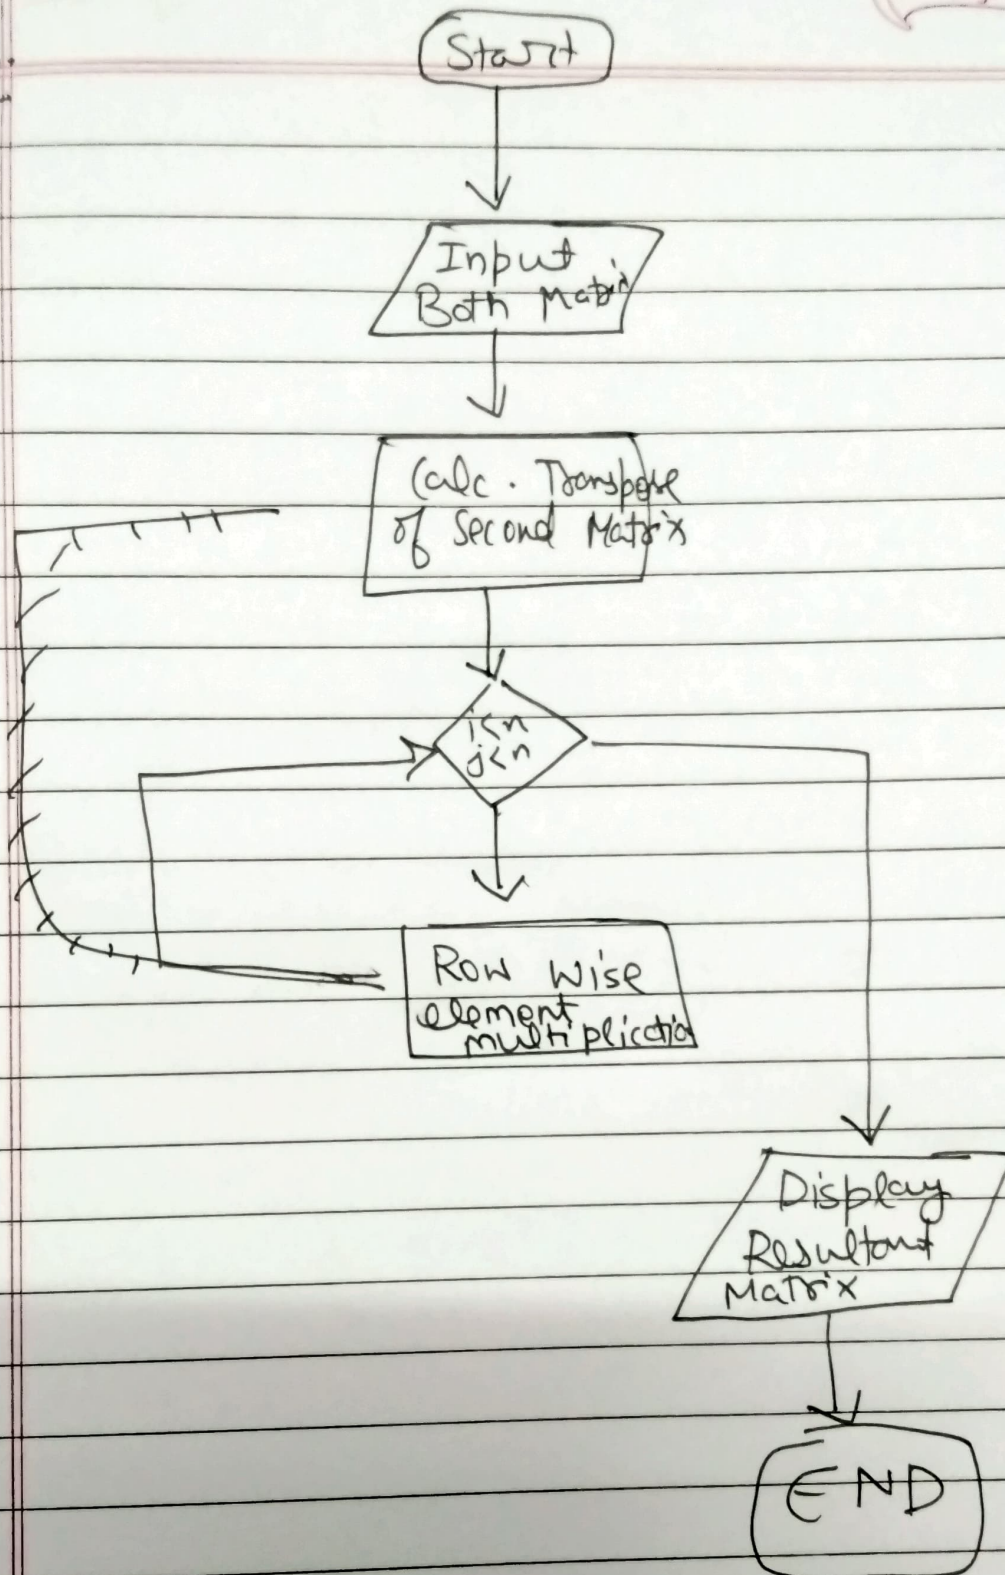 Start
Input
Both Matrix
Calc. Transpose
of Second Matrix
i<n
j<n
Row Wise
element
multiplicatio
Display
Resultant
Matrix
END